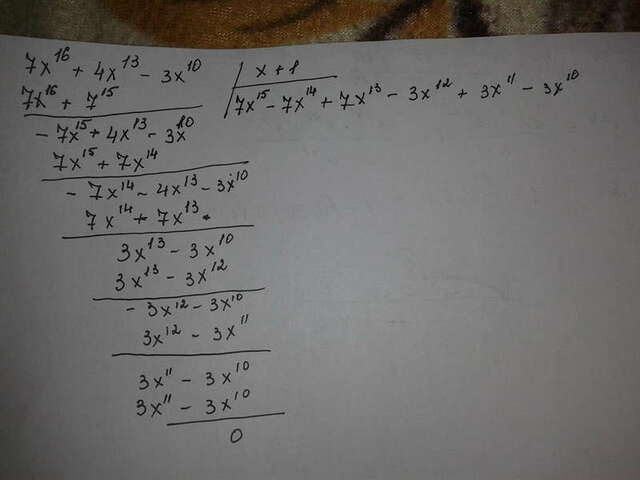 7x¹⁶ + 4x¹³ - 3x¹⁰ | x + 1
7x¹⁶ + 7¹⁵ | 7x¹⁵ - 7x¹⁴ + 7x¹³ - 3x¹² + 3x¹¹ - 3x¹⁰
- 7x¹⁵ + 4x¹³ - 3x¹⁰
7x¹⁵ + 7x¹⁴
- 7x¹⁴ - 4x¹³ - 3x¹⁰
7x¹⁴ + 7x¹³
3x¹³ - 3x¹⁰
3x¹³ - 3x¹²
- 3x¹² - 3x¹⁰
3x¹² - 3x¹¹
3x¹¹ - 3x¹⁰
3x¹¹ - 3x¹⁰
0